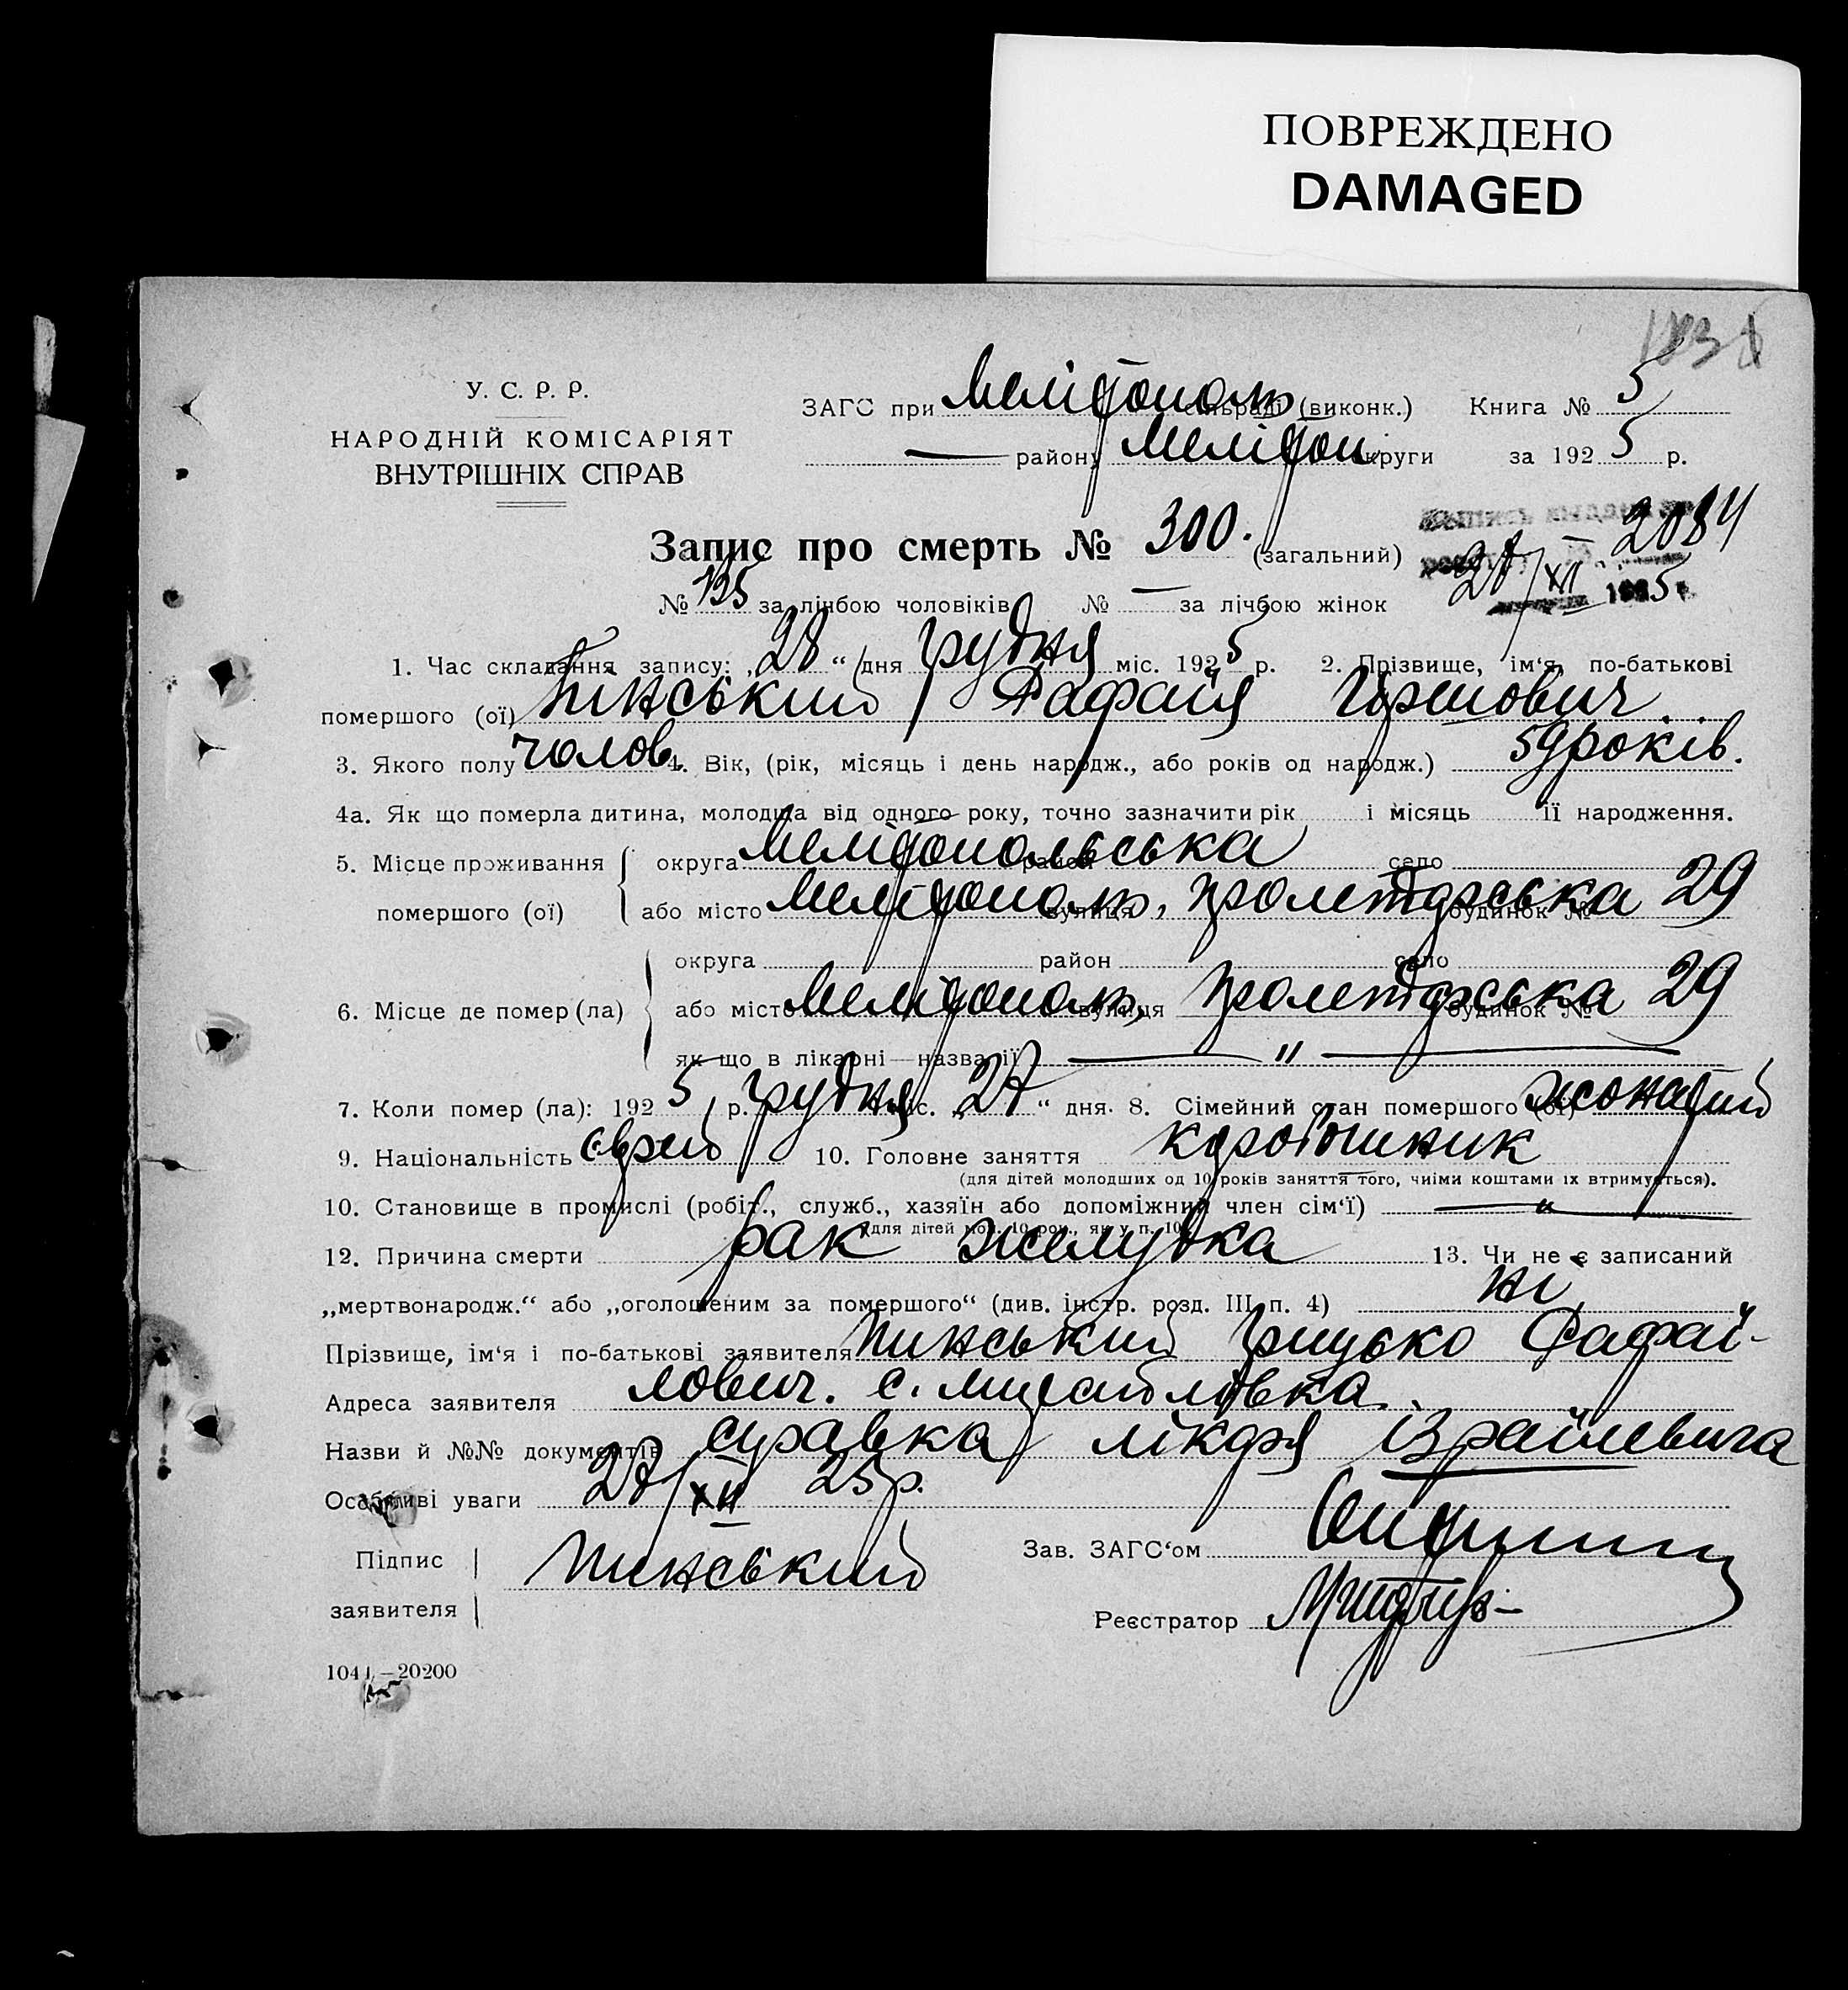 ПОВРЕЖДЕНО
DAMAGED
У. С. Р. Р.
НАРОДНІЙ КОМІСАРІЯТ
ВНУТРІШНІХ СПРАВ
ЗАГС при Мелітополь сільраді (виконк.) Книга № 5
— району Мелітоп. округи за 1925 р.
Запис про смерть № 300. (загальний) 2084
№ 155 за лічбою чоловіків № — за лічбою жінок 28/XII 1925 г.
1. Час складання запису: „28“ дня грудня міс. 1925 р. 2. Прізвище, ім‘я, по-батькові
помершого (ої) Пінський Рафаіл Гіршович
3. Якого полу чолов. 4. Вік, (рік, місяць і день народж., або років од народж.) 59 років.
4а. Як що померла дитина, молодша від одного року, точно зазначити рік і місяць її народження.
5. Місце проживання округа Мелітопольська район село
помершого (ої) або місто Мелітополь, вулиця Пролетарська будинок № 29
округа район село
6. Місце де помер (ла) або місто Мелітополь, вулиця Пролетарська будинок № 29
як що в лікарні—назва її — " —
7. Коли помер (ла): 1925 р. грудня міс. „27“ дня. 8. Сімейний стан помершого (ої) жонатий
9. Національність єврей 10. Головне заняття
(для дітей молодших од 10 років заняття того, чиїми коштами їх втримується).
10. Становище в промислі (робіт., служб., хазяїн або допоміжний член сім‘ї) — " —
(для дітей мол. 10 рок., як у п. 10)
12. Причина смерти рак желудка 13. Чи не є записаний
„мертвонародж.“ або „оголошеним за помершого“ (див. інстр. розд. III п. 4) ні
Прізвище, ім‘я і по-батькові заявителя Пинський Грицько Рафаї-
Адреса заявителя лович. с.
Назви й №№ документів справка лікаря Ізраїлевича
Особливі уваги 27/XII 25 р.
Підпис
заявителя Пинський
Зав. ЗАГС‘ом
Реєстратор
1041—20200